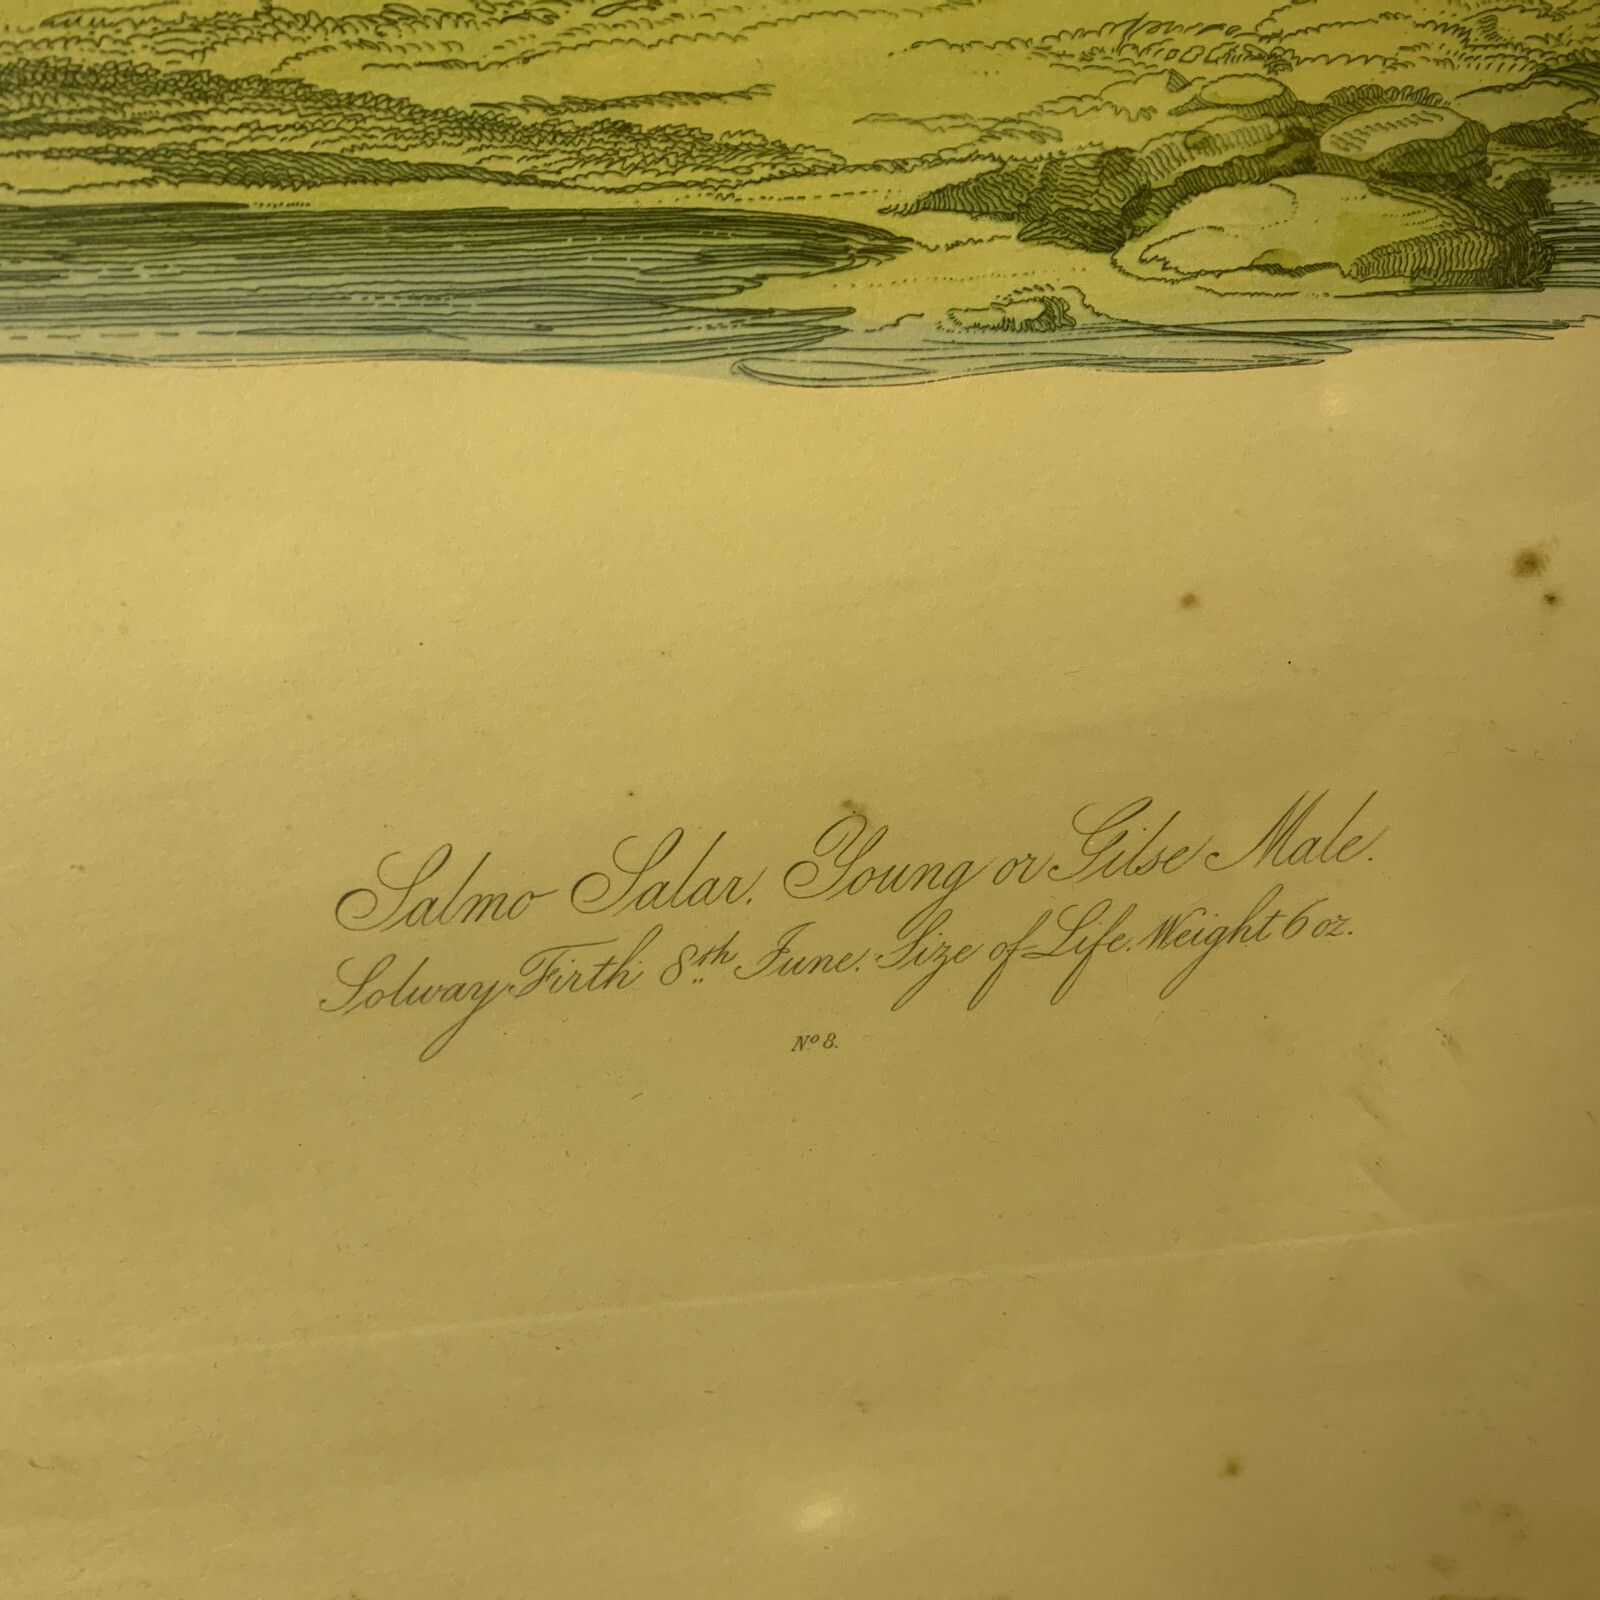 Salmo Salar. Young or Gilse Male.
Solway Firth 8th June. Size of Life. Weight 6 oz.
No 8.